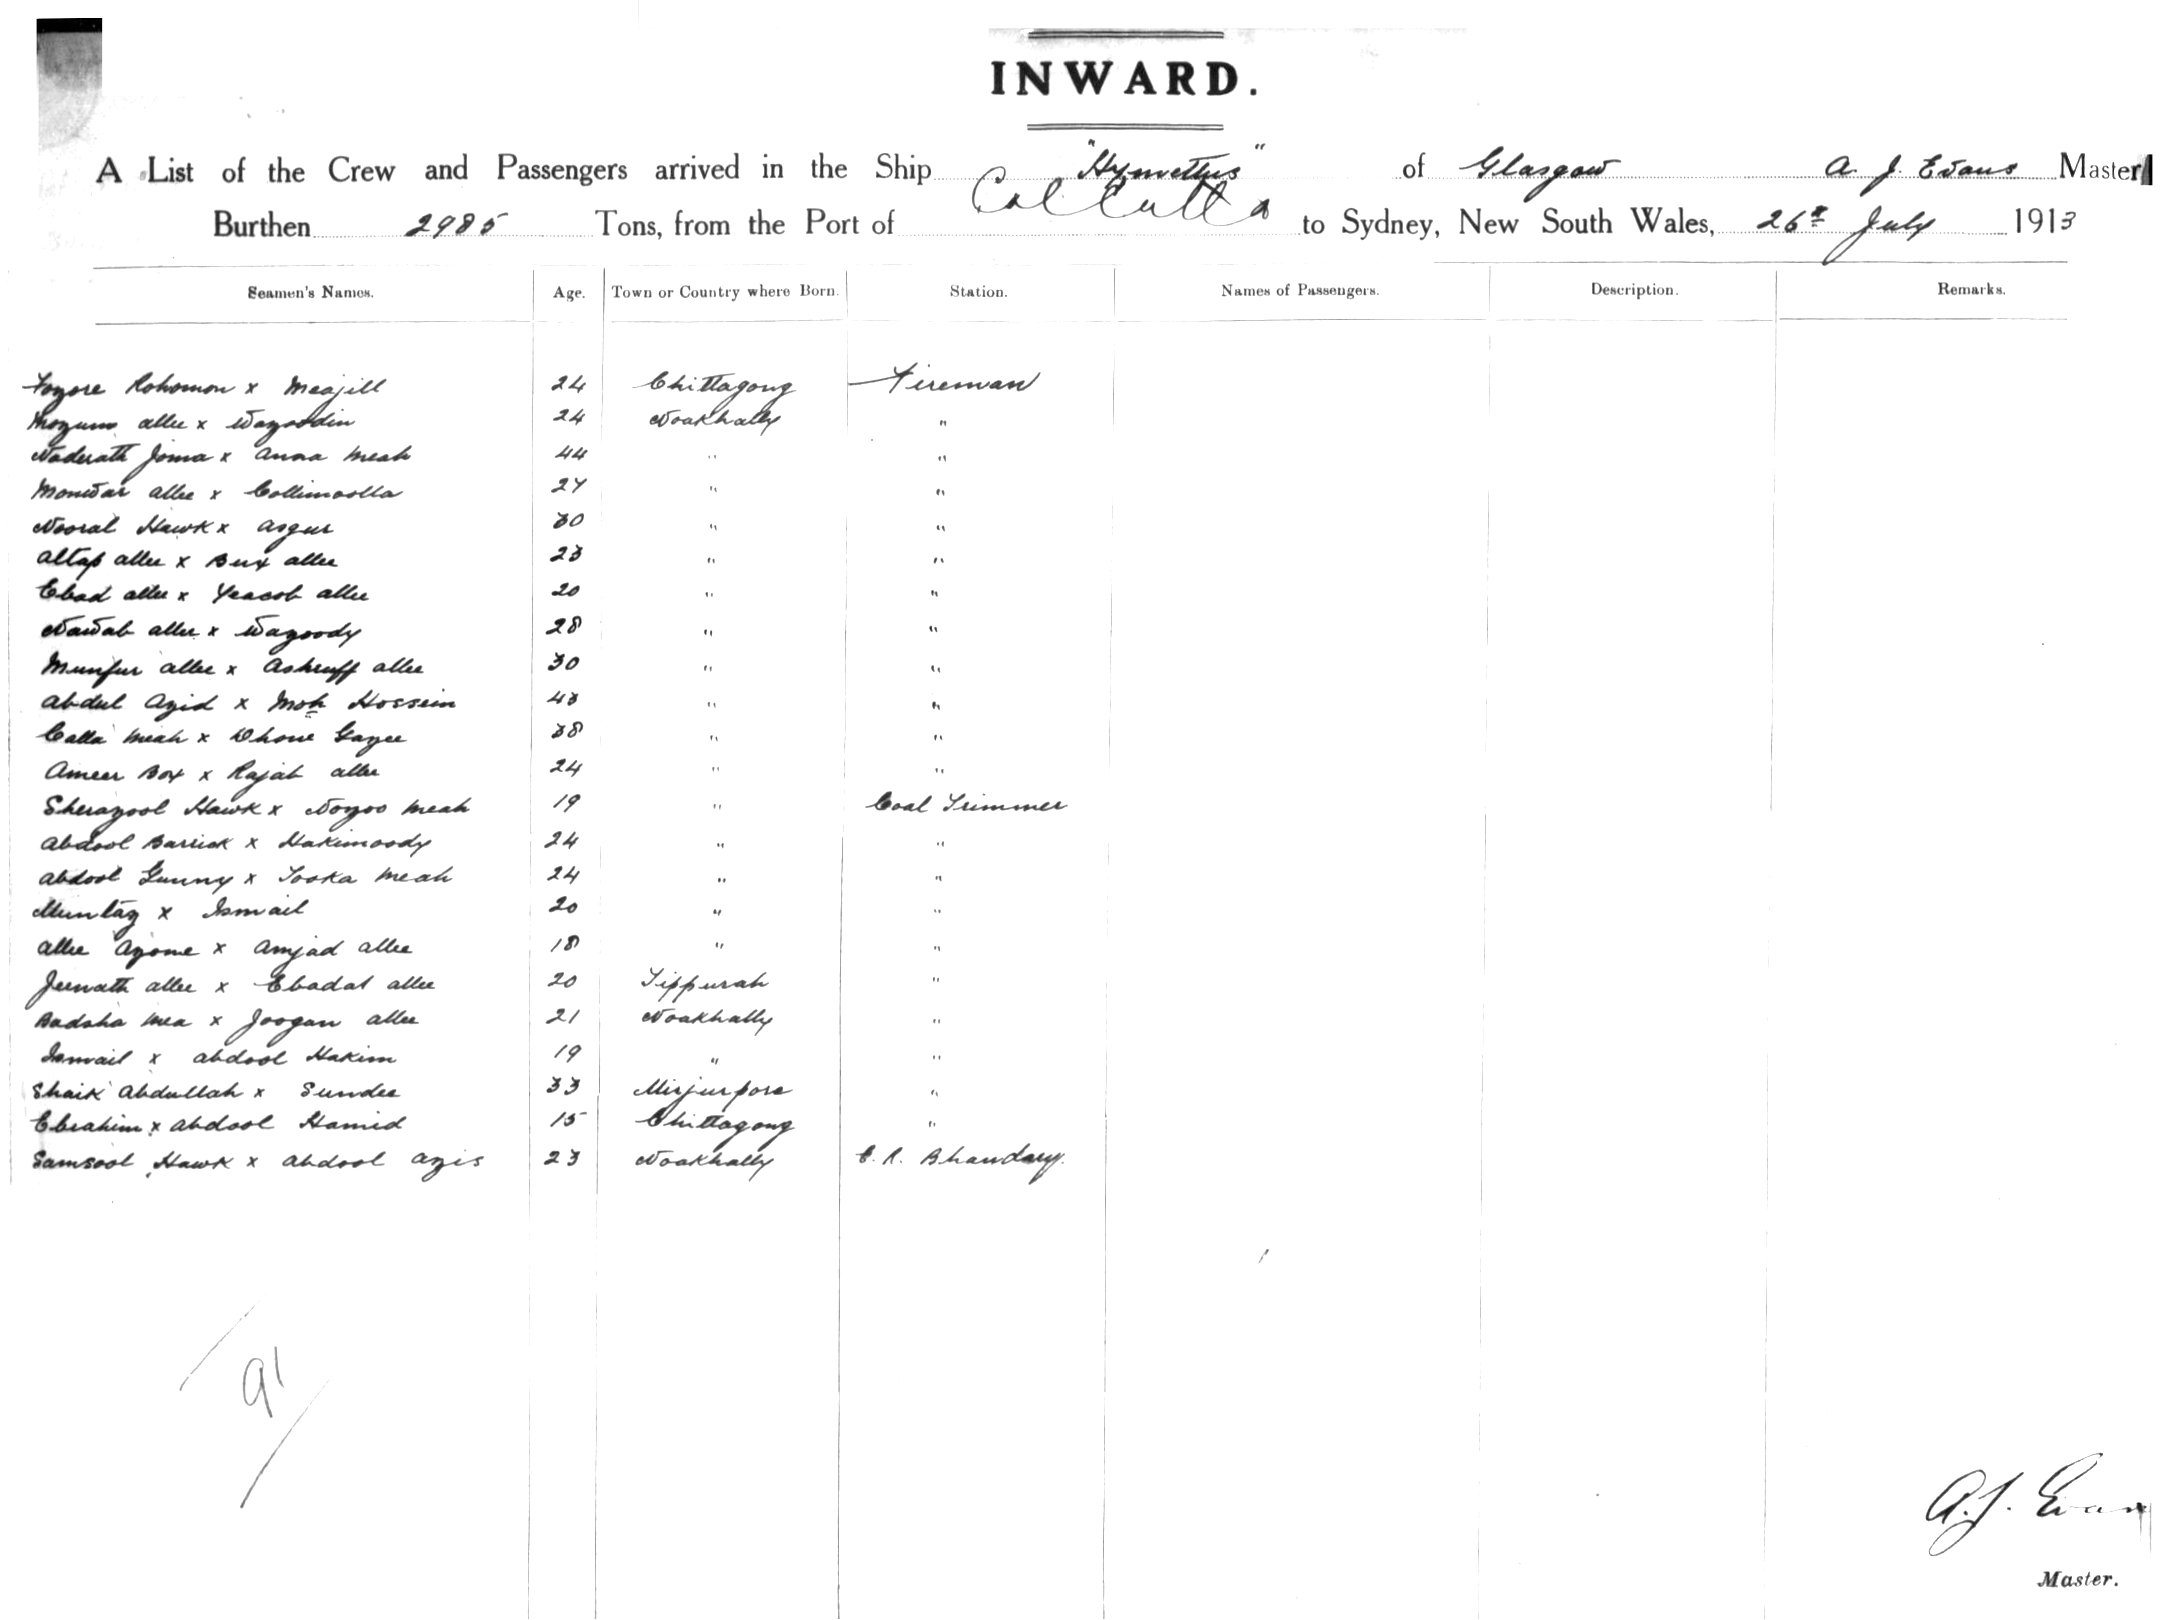 INWARD.
A List of the Crew and Passengers arrived in the Ship "Hymettus" of Glasgow A. J. Evans Master
Burthen 2985 Tons, from the Port of Calcutta to Sydney, New South Wales, 26th July 1913
Seamen's Names. Age. Town or Country where Born. Station. Names of Passengers. Description. Remarks.
Fozore Rohomon x Meajill 24 Chittagong Fireman
Mozum allee x Wazoodin 24 Noakhally "
Naderath Joma x Anna Meah 44 " "
Monwar allee x Collimoolla 27 " "
Nooral Hawk x Asgur 30 " "
Altap allee x Bux allee 23 " "
Ebad allee x Yeacob allee 20 " "
Nawab allee x Wazoody 28 " "
Munfur allee x Ashruff allee 30 " "
Abdul Azid x Moh Hossein 43 " "
Calla Meah x Dhone Gazee 38 " "
Ameer Box x Rajab allee 24 " "
Sherazool Hawk x Nozoo Meah 19 " Coal Trimmer
Abdool Barick x Hakimoody 24 " "
Abdool Gunny x Tooka Meah 24 " "
Muntaz x Ismail 20 " "
Allee Azome x Amjad allee 18 " "
Jeenath allee x Ebadat allee 20 Tippurah "
Badsha Mea x Joogan allee 21 Noakhally "
Ismail x Abdool Hakim 19 " "
Shaik Abdullah x Sundee 33 Mirjurpore "
Ebrahim x Abdool Hamid 15 Chittagong "
Samsool Hawk x Abdool Azis 23 Noakhally E. R. Bhandary.
91
A. J. Evans
Master.